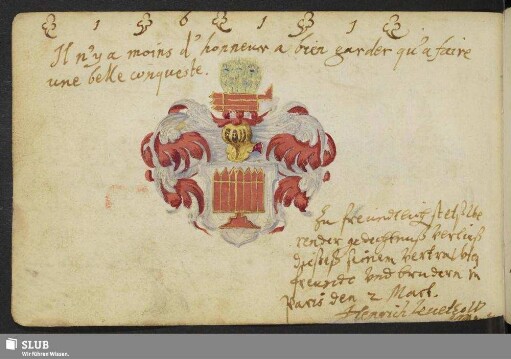 1 5 6 1 5 1
Il n'y a moins d'honneur a bien garder qu'a faire
une belle conqueste.
Zu freundtlich
render gedechtnuß verließ
dießeß seinem
freunde vnd brudern in
Paris den 2 Mart.
Henrich
SLUB
Wir führen Wissen.